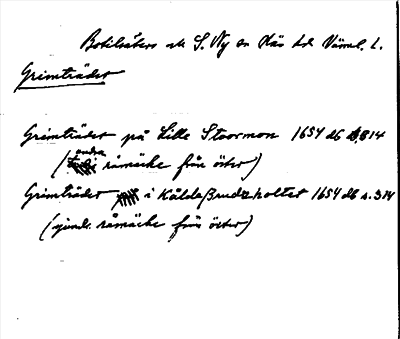 Botilsäters sn S. Ny en Näs hd Värml. l.
Grimträdet
Grimträdet på Lille Stoormon 1654 db s. 814
(andra råmärke från öster)
Grimträdet i Kålda Brudzholtet 1654 db s. 314
råmärke från öster)